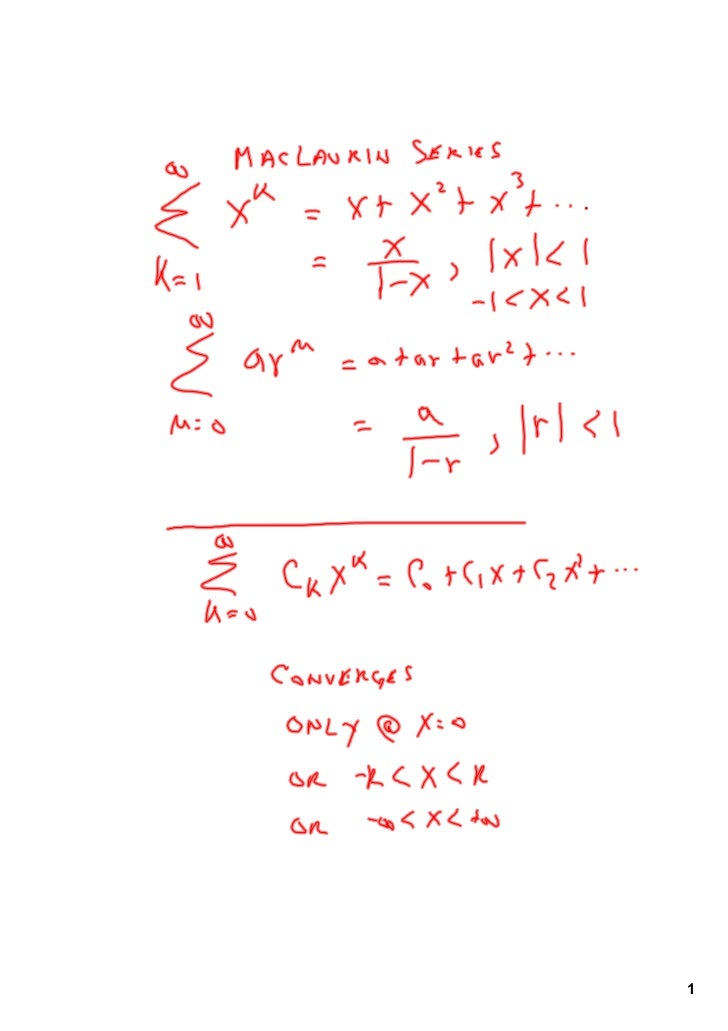 MACLAURIN SERIES
∞
∑ x^k = x + x² + x³ + ...
k=1
= x/(1-x), |x| < 1
-1 < x < 1
∞
∑ ar^n = a + ar + ar² + ...
n=0
= a/(1-r), |r| < 1
∞
∑ C_k x^k = C_0 + C_1 x + C_2 x² + ...
k=0
CONVERGES
ONLY @ X=0
OR -R < X < R
OR -∞ < X < +∞
1